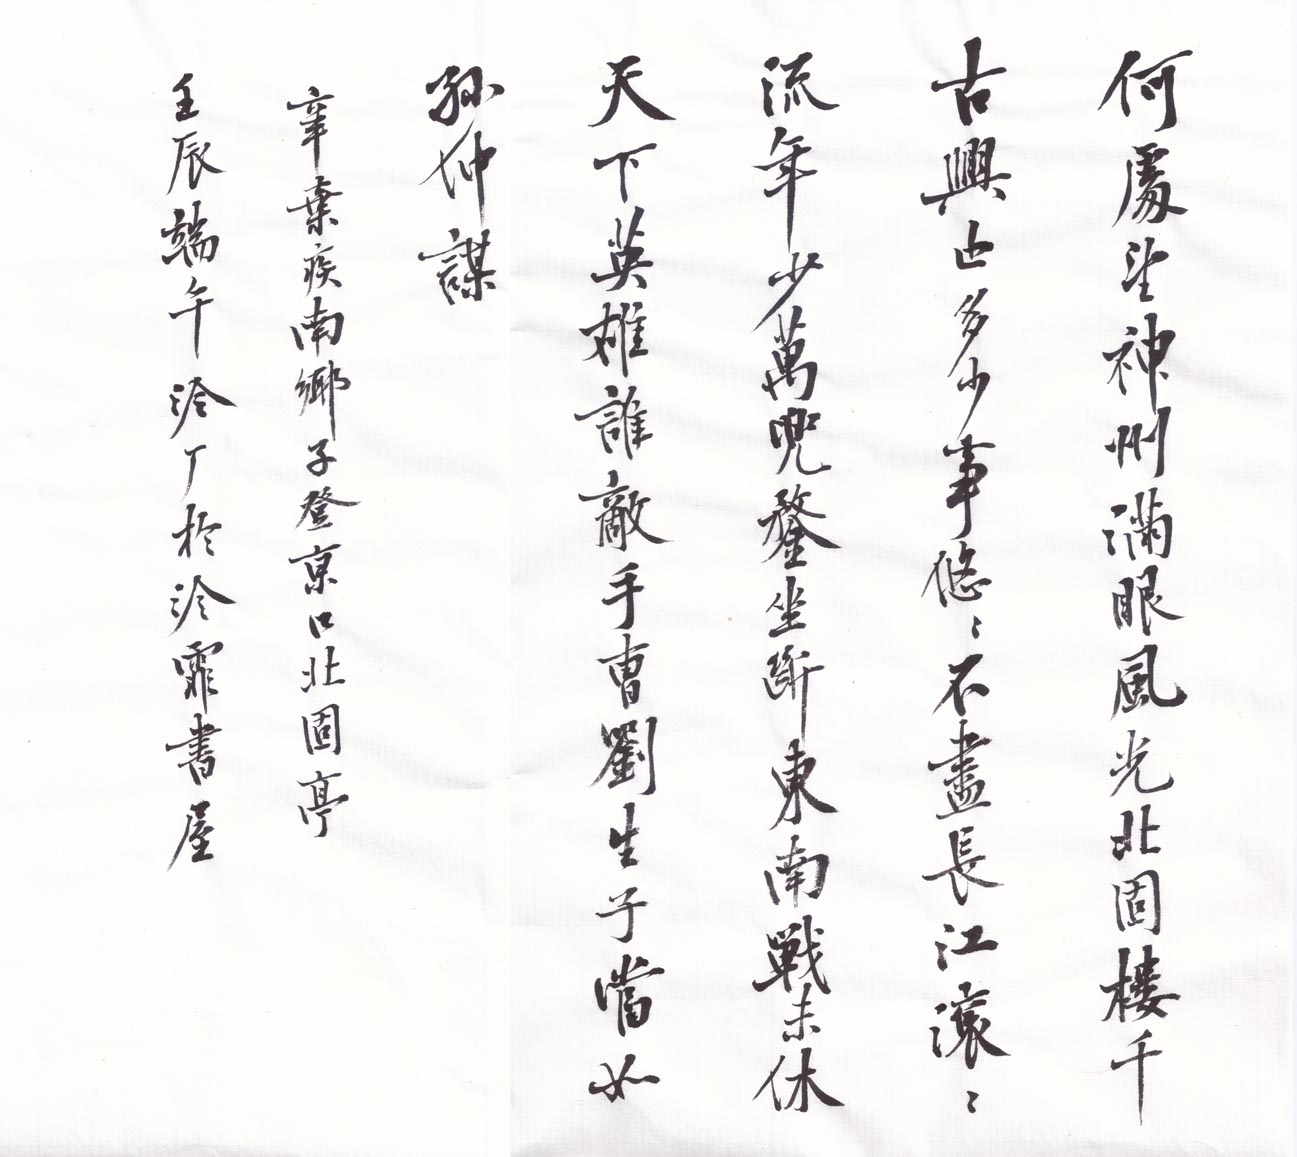 何處望神州滿眼風光北固樓千
古興亡多少事悠〻不盡長江滾〻
流年少萬兜鍪坐斷東南戰未休
天下英雄誰敵手曹劉生子當如
孫仲謀
辛棄疾南鄉子登京口北固亭
壬辰端午泠厂於泠霏書屋